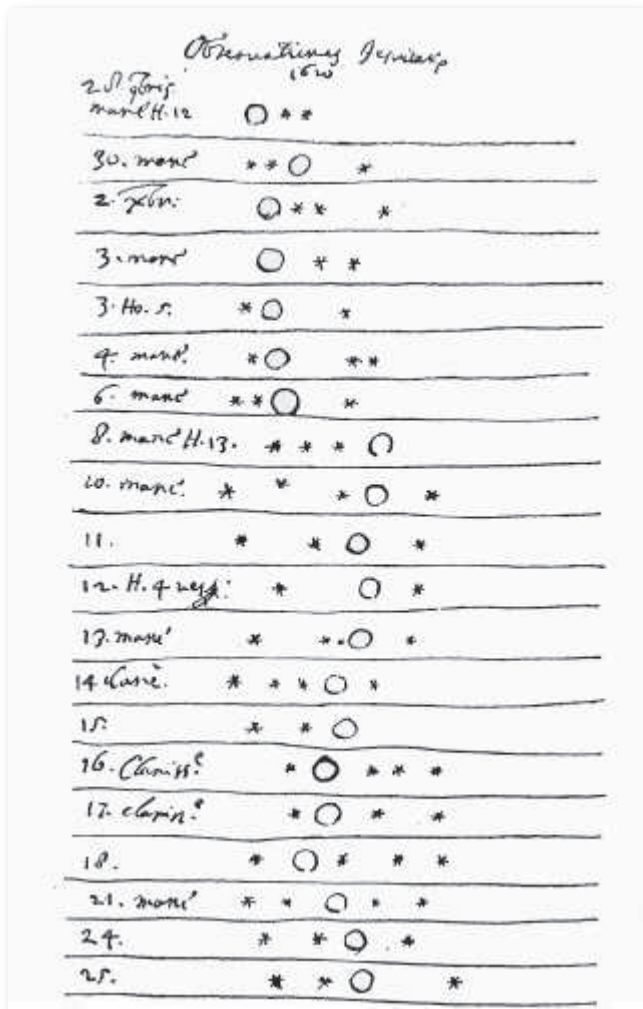 Observationes Jesuitarum
1610
28. 9bris
mane H. 12
30. mane
2. Xbr:
3. mane
3. Ho. 5.
4. mane.
6. mane
8. mane H. 13.
10. mane.
11.
12. H. 4
13. mane
14 mane.
15.
16. Clariss.
17. clariss.
18.
21. mane
24.
25.